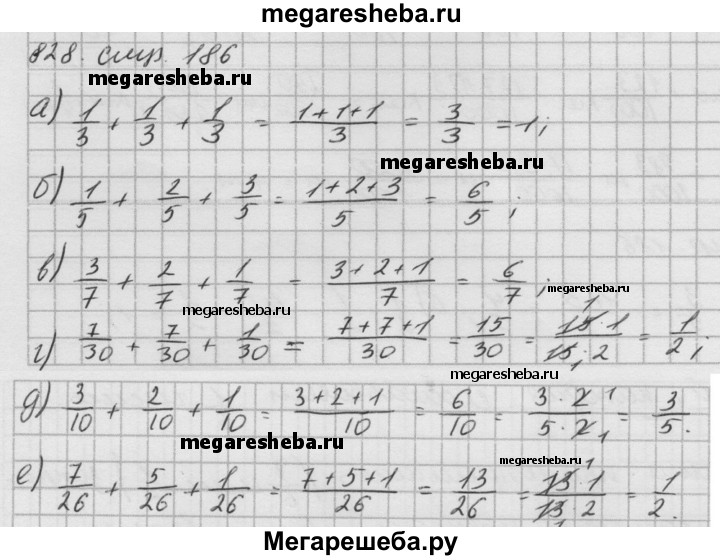 megaresheba.ru
828. стр. 186
megaresheba.ru
а) 1/3 + 1/3 + 1/3 = (1+1+1)/3 = 3/3 = 1;
megaresheba.ru
б) 1/5 + 2/5 + 3/5 = (1+2+3)/5 = 6/5;
в) 3/7 + 2/7 + 1/7 = (3+2+1)/7 = 6/7;
megaresheba.ru
megaresheba.ru
г) 7/30 + 7/30 + 1/30 = (7+7+1)/30 = 15/30 = (15 1 · 1)/(15 · 2) = 1/2;
megaresheba.ru
д) 3/10 + 2/10 + 1/10 = (3+2+1)/10 = 6/10 = (3 · 2 1)/(5 · 2 1) = 3/5.
megaresheba.ru
megaresheba.ru
е) 7/26 + 5/26 + 1/26 = (7+5+1)/26 = 13/26 = (13 1 · 1)/(13 1 · 2) = 1/2.
Мегарешеба.ру